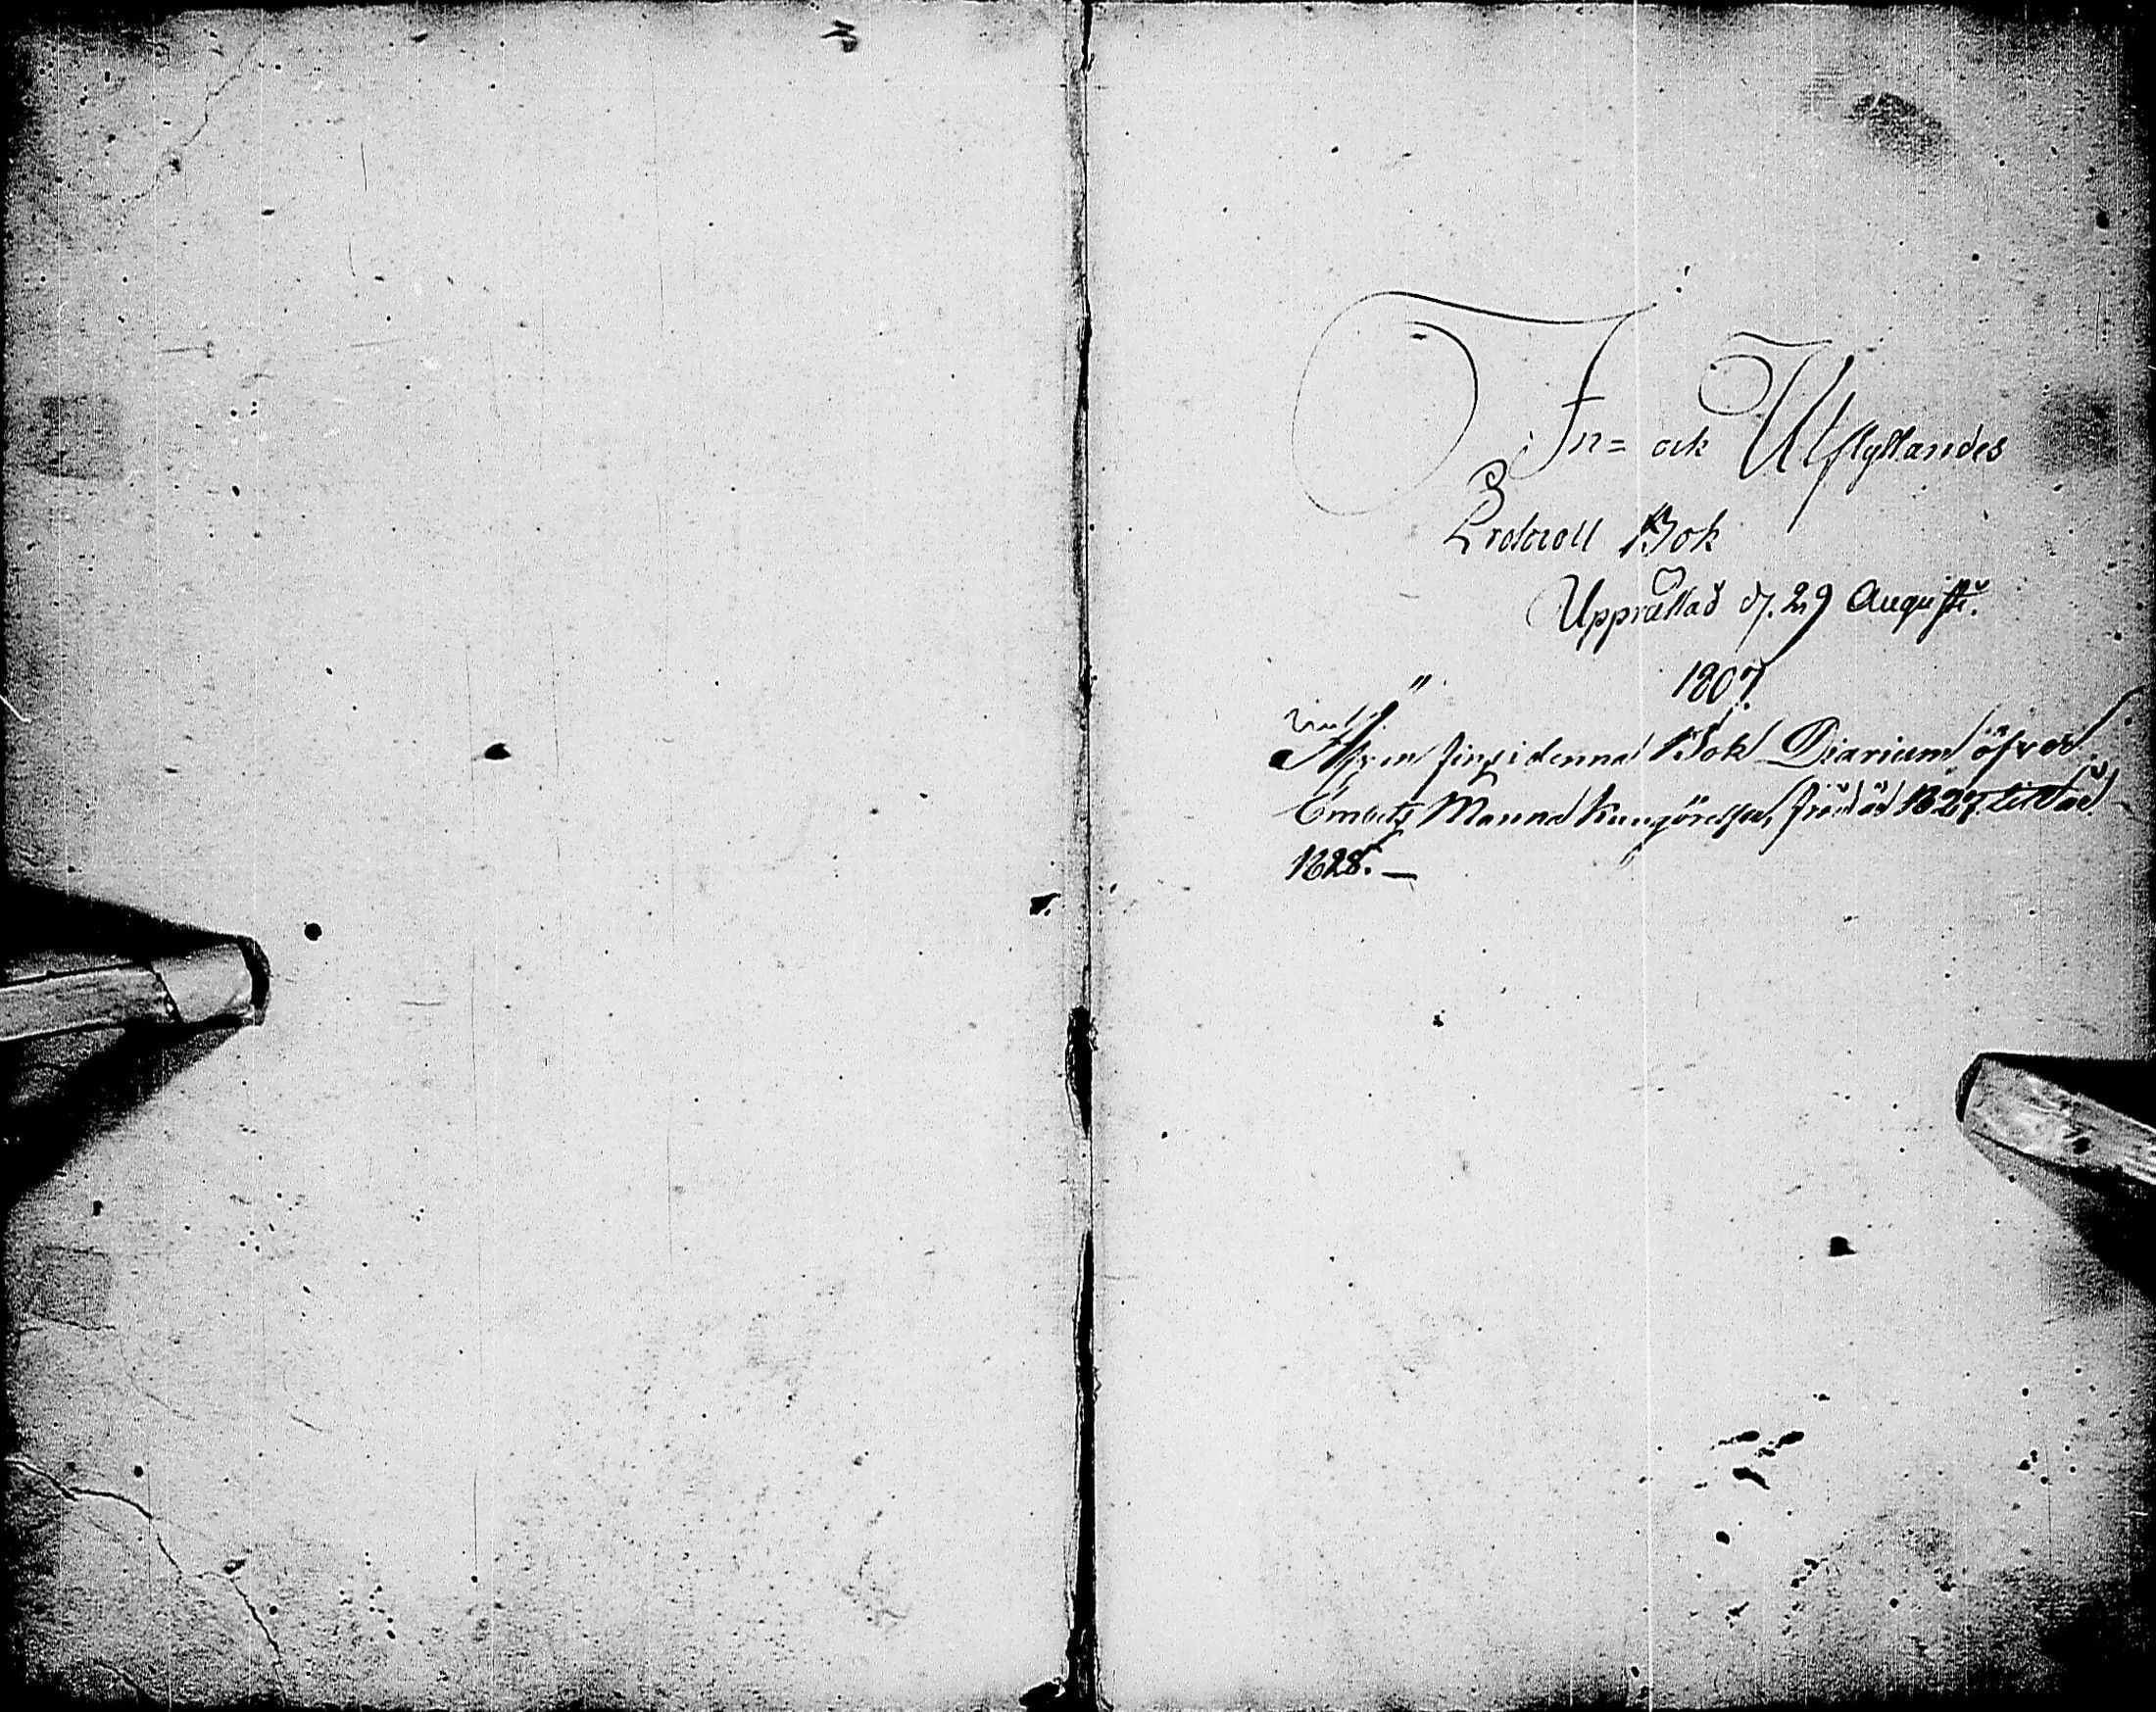 In= och Utflyttandes
Protocoll Bok
Upprättad d. 29 Augusti.
1807.
Äfven fins i denna Bok Diarium öfver
Embets Manna Kungörelser, från år 1827 till år
1828. —